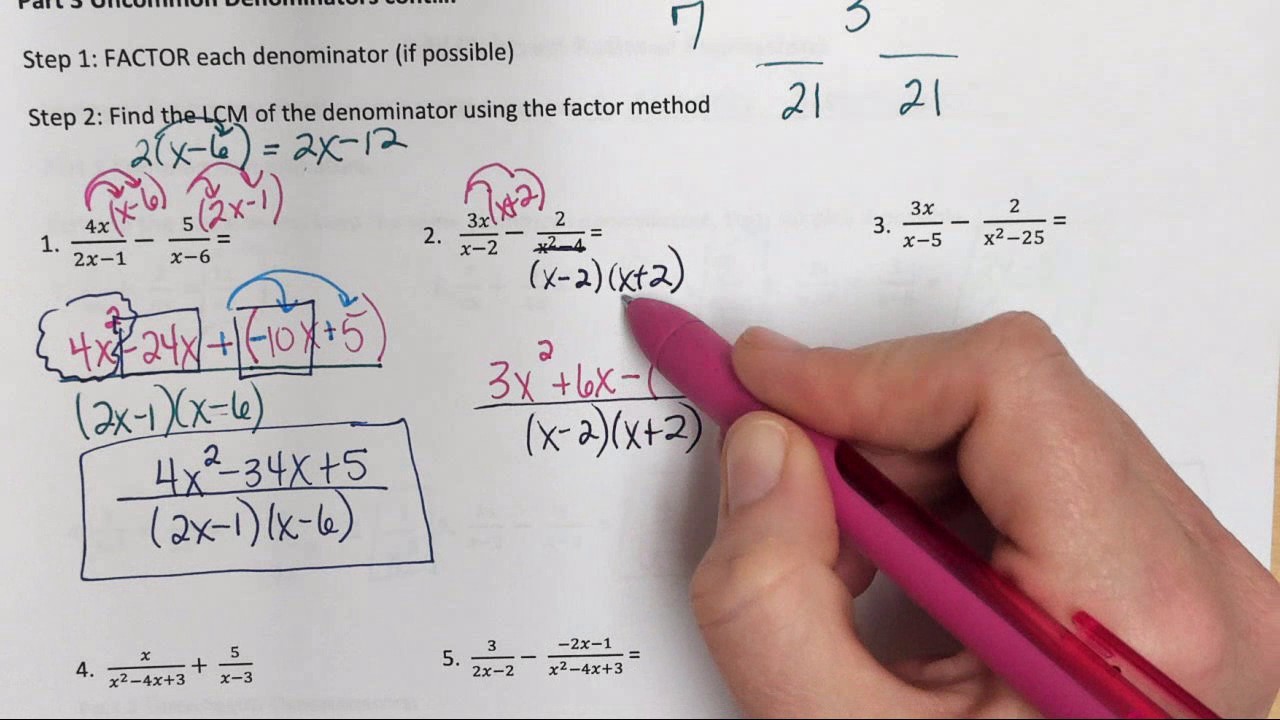 Part 3 Uncommon Denominators cont...
7 3
21 21
Step 1: FACTOR each denominator (if possible)
Step 2: Find the LCM of the denominator using the factor method
2(x-6) = 2x-12
(x-6) (2x-1)
1. 4x/2x−1 − 5/x−6 =
4x²-24x + (-10x+5)
(2x-1)(x-6)
4x²-34x+5
(2x-1)(x-6)
(x+2)
2. 3x/x−2 − 2/x²−4 =
(x-2)(x+2)
3x²+6x-(
(x-2)(x+2)
3. 3x/x−5 − 2/x²−25 =
4. x/x²−4x+3 + 5/x−3
5. 3/2x−2 − −2x−1/x²−4x+3 =